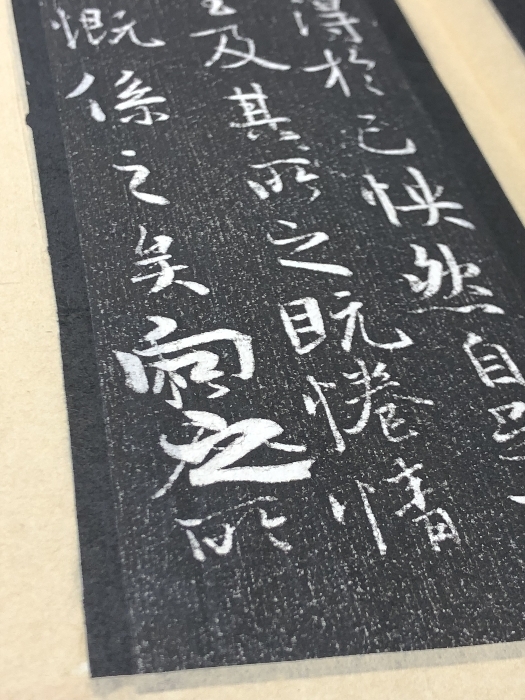 得於己怏然自足
至及其所之既惓情
慨係之矣向之所